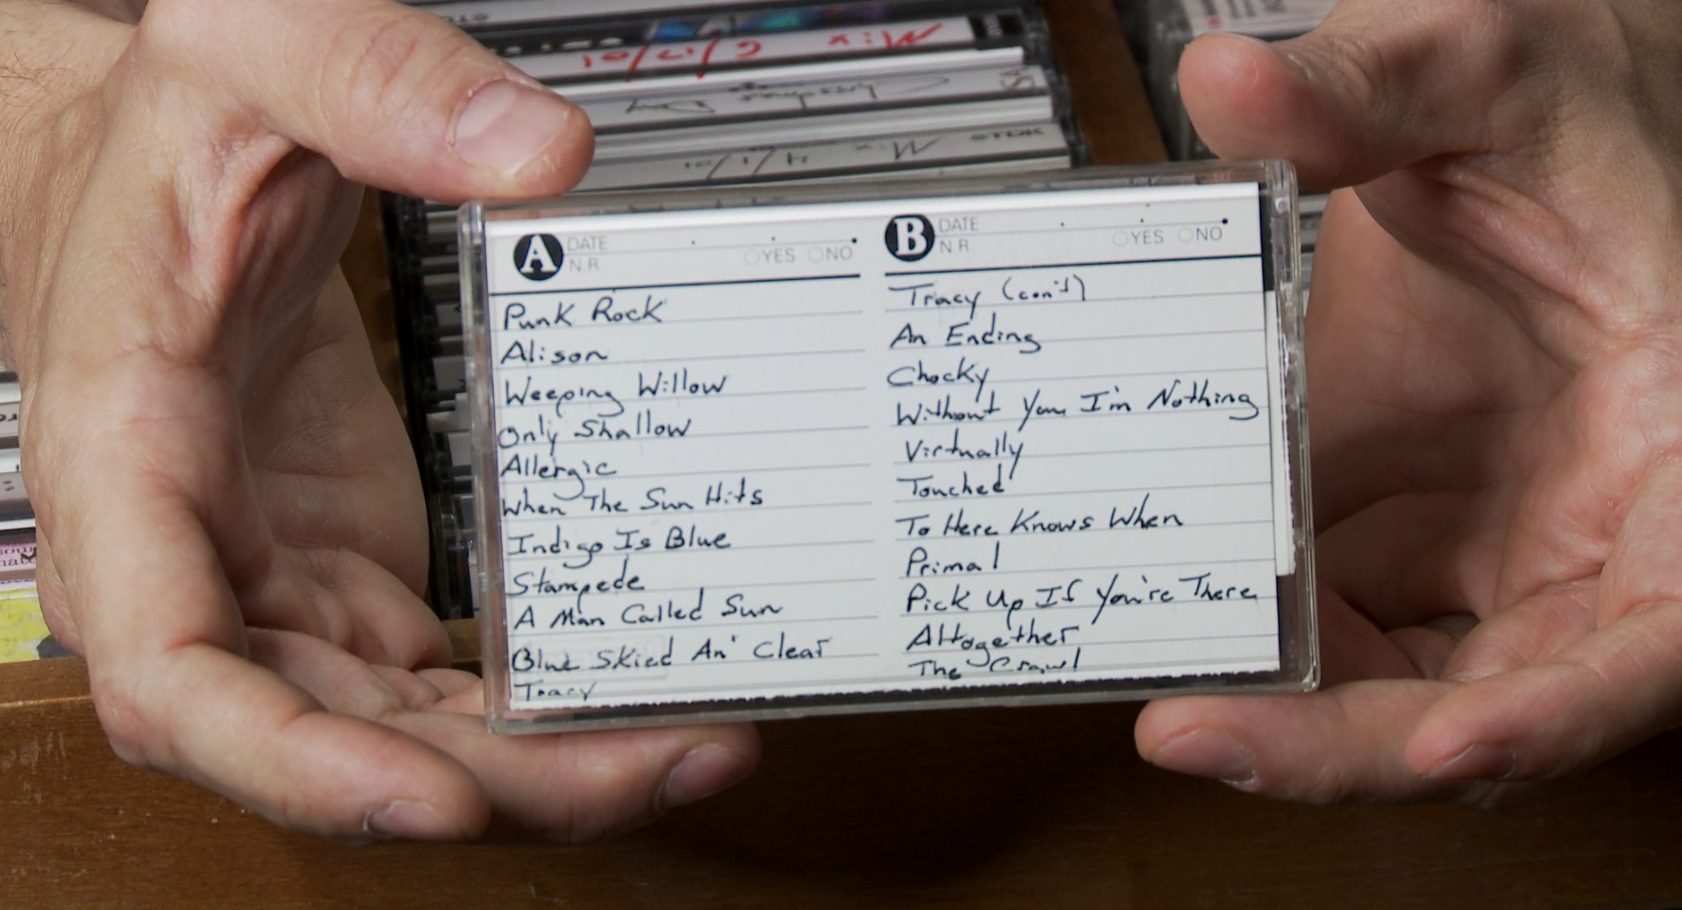 Mix 6/17/01
Christmas Day
Mix 4/1/01
TDK
A DATE
N.R. YES NO
Punk Rock
Alison
Weeping Willow
Only Shallow
Allergic
When The Sun Hits
Indigo Is Blue
Stampede
A Man Called Sun
Blue Skied An' Clear
Tracy
B DATE
N.R. YES NO
Tracy (con't)
An Ending
Chocky
Without You I'm Nothing
Virtually
Touched
To Here Knows When
Primal
Pick Up If You're There
Altogether
The Crawl